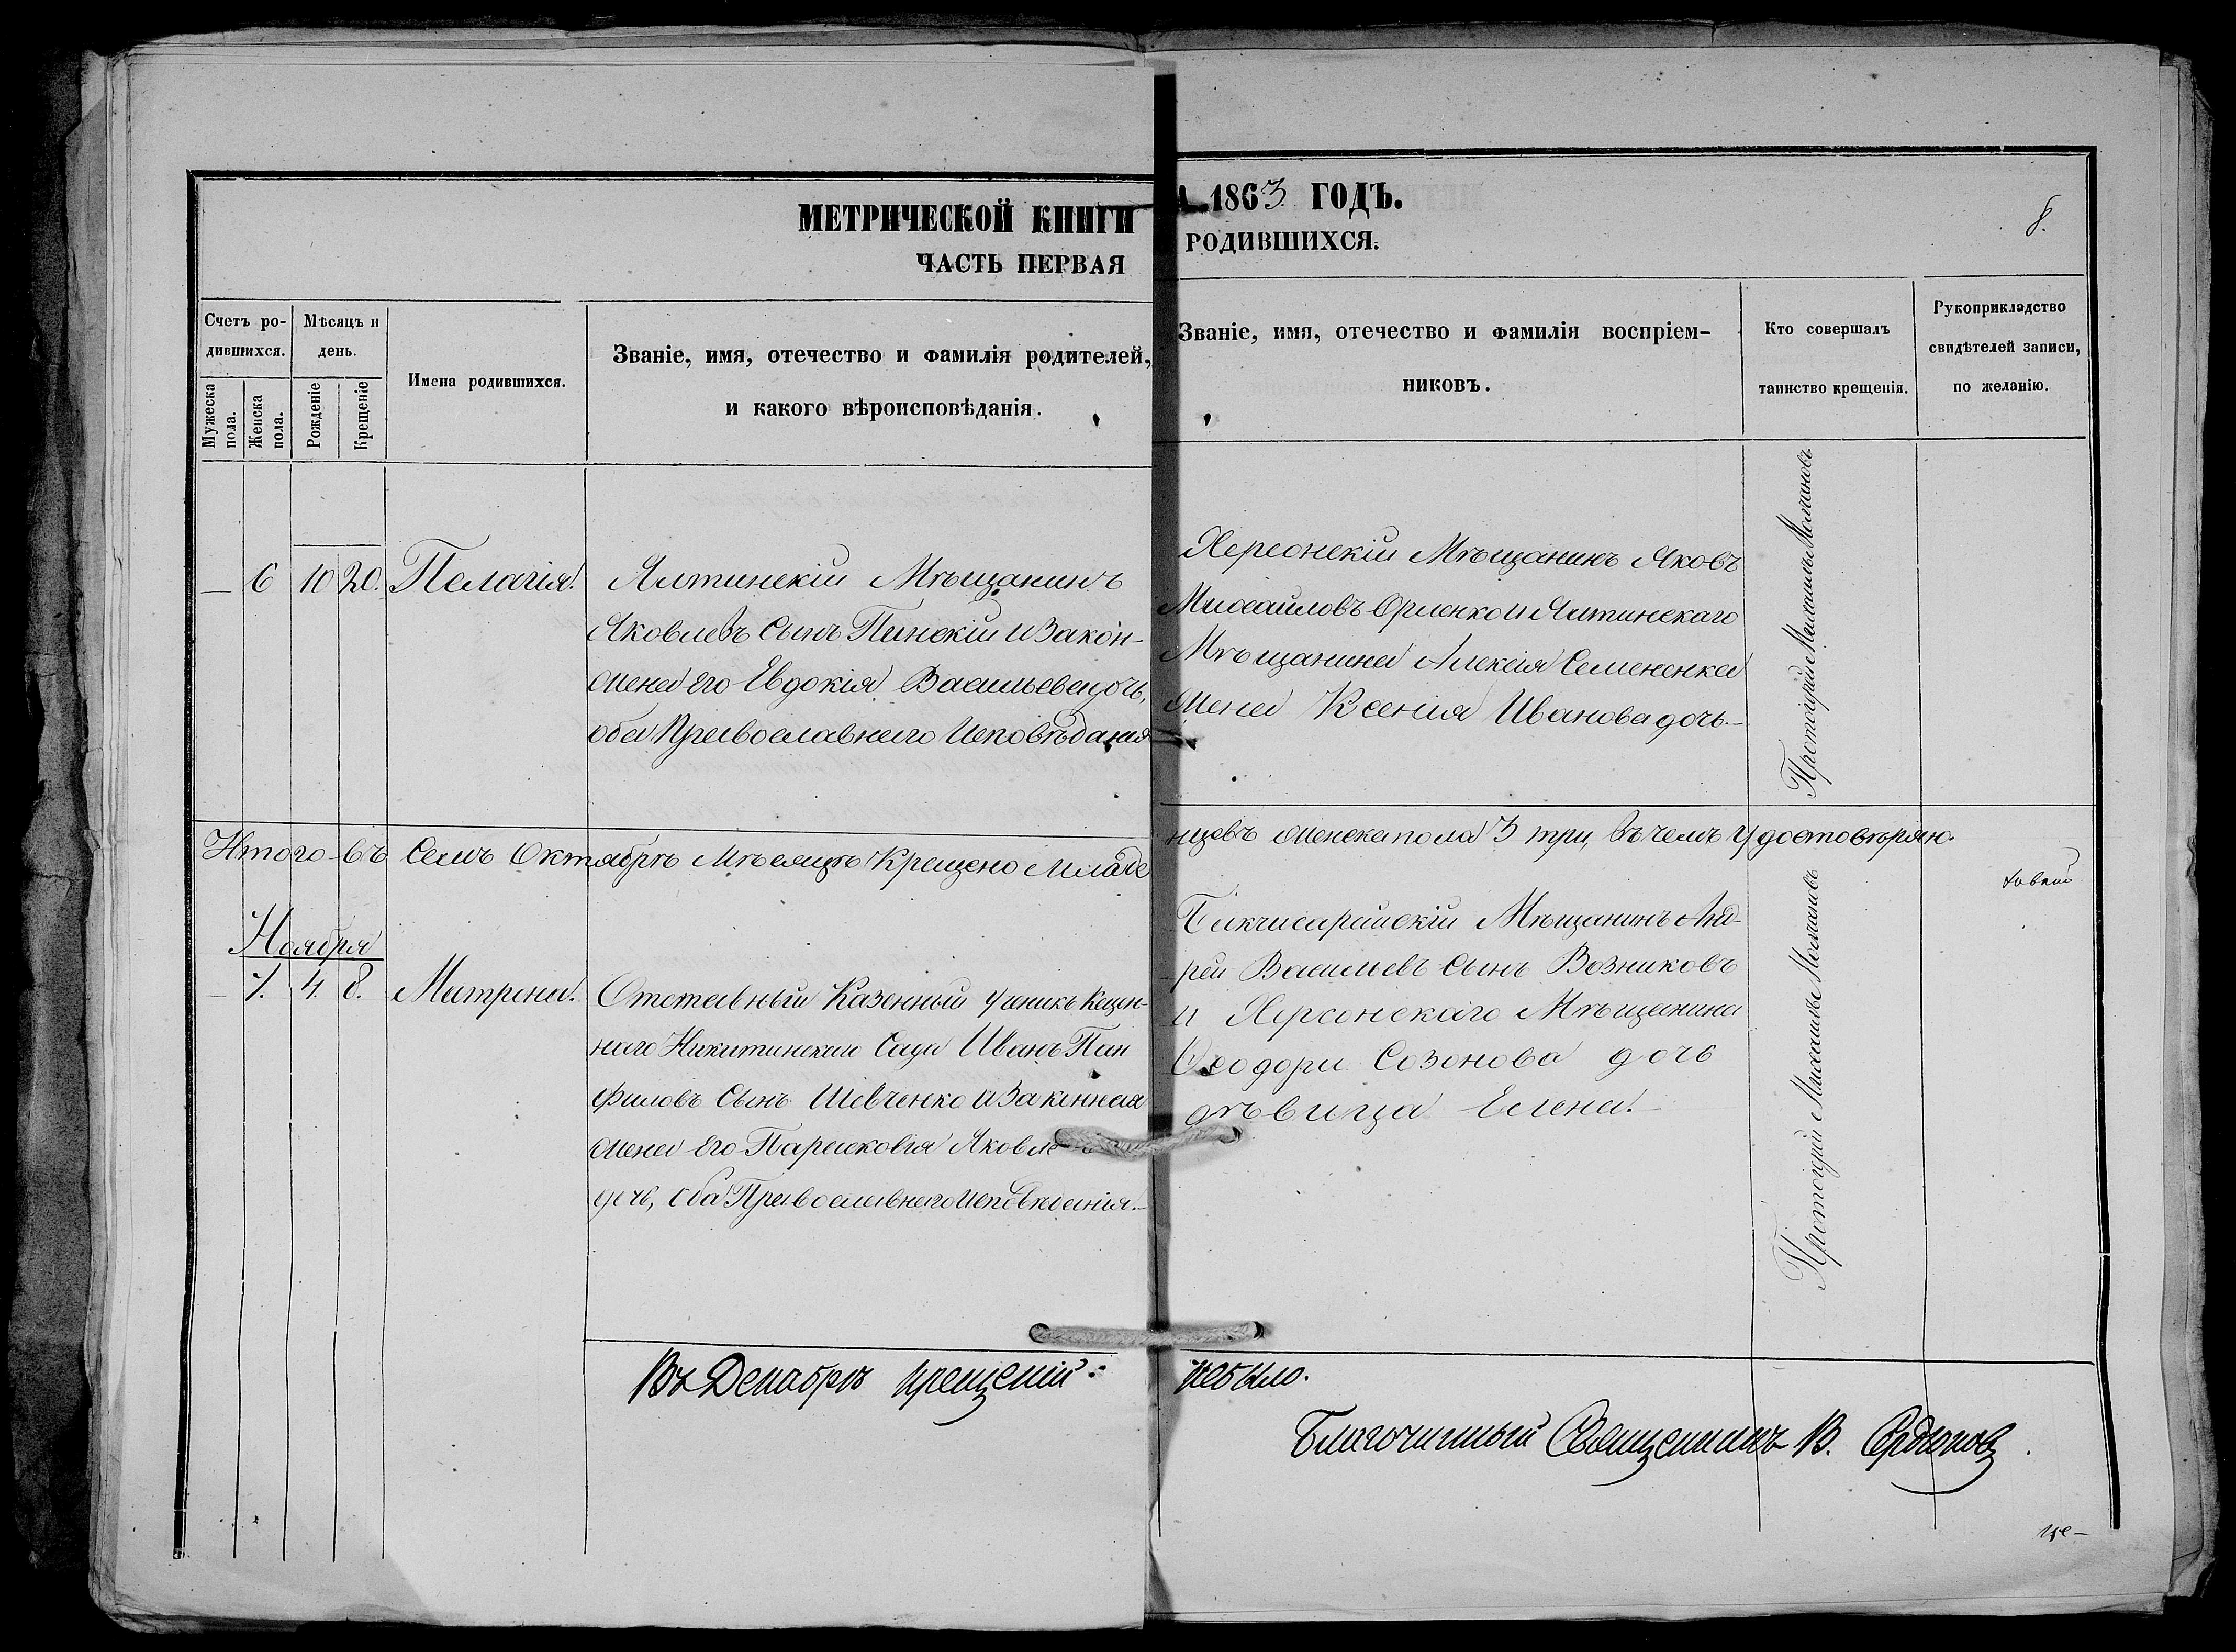 МЕТРИЧЕСКОЙ КНИГИ
А 1863 ГОДЪ.
8.
ЧАСТЬ ПЕРВАЯ
РОДИВШИХСЯ.
Счетъ ро-
дившихся.
Мужеска
пола.
Женска
пола.
Мѣсяцъ и
день.
Рожденіе
Крещеніе
Имена родившихся.
Званіе, имя, отечество и фамилія родителей,
и какого вѣроисповѣданія.
Званіе, имя, отечество и фамилія воспріем-
никовъ.
Кто совершалъ
таинство крещенія.
Рукоприкладство
свидѣтелей записи,
по желанію.
— 6 10 20. Пелагія.
Ялтинскій Мѣщанинъ
Яковлевъ Сынъ Пинскій и Закон-
жена его Евдокія Васильева дочь,
оба Православнаго Исповѣданія
Херсонскій Мѣщанинъ Яковъ
Михайловъ Орленко и Ялтинскаго
Мѣщанина Алексія Семененка
жена Ксенія Иванова дочь.—
Протоіерей Михаилъ Молчановъ
Итого въ Семъ Октябрѣ Мѣсяцѣ Крещено Младе
нцевъ женска пола 3 три, въ чемъ удостовѣряю.
Ноября
— 7. 4. 8. Матрона.
Отставный Казенный Ученикъ Казен-
наго Никитинскаго Сада Иванъ Пан
филовъ Сынъ Шевченко и Законная
жена его Парасковія Яковле
дочь, оба Православнаго Исповѣданія.—
Бакчисарайскій Мѣщанинъ Анд-
рей Васильевъ Сынъ Возниковъ
и Херсонскаго Мѣщанина
Ѳеодора Созонова дочь
дѣвица Елена.—
Протоіерей Михаилъ Молчановъ
Въ Декабрѣ крещеній
небыло.
Благочинный Священникъ В.